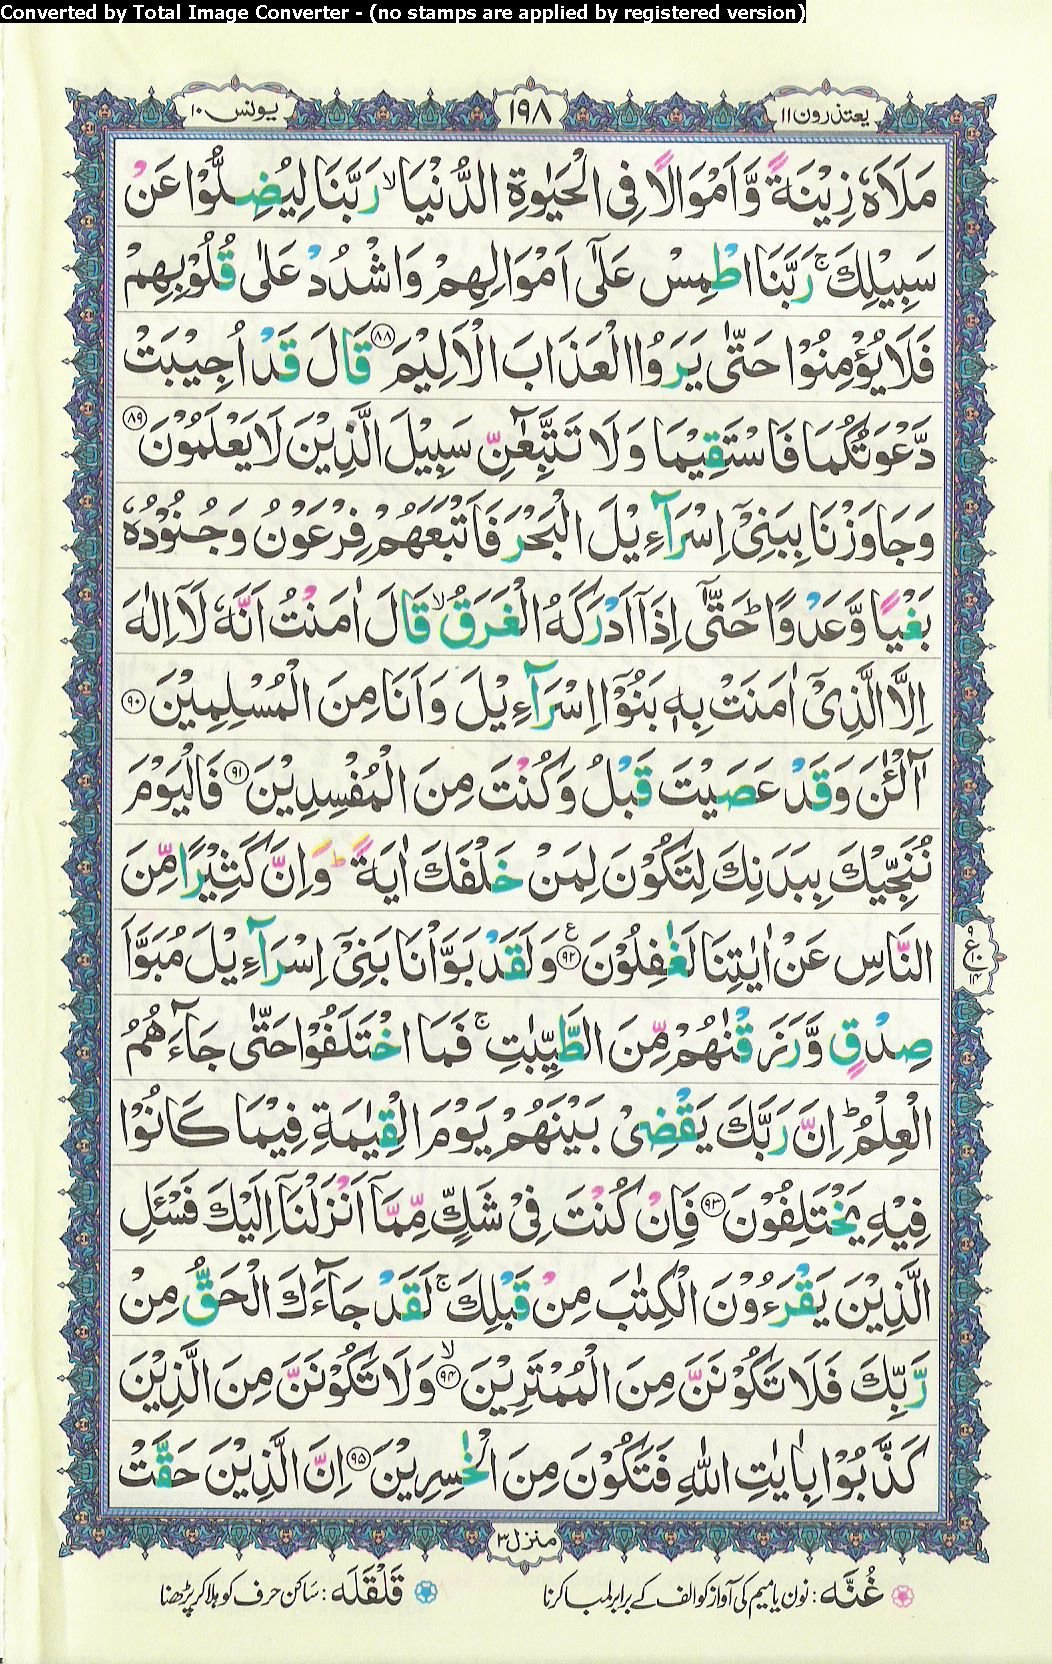 Converted by Total Image Converter - (no stamps are applied by registered version)
يعتذرون ١١ ١٩٨ يونس ١٠
مَلَاَهٗ زِيْنَةً وَّاَمْوَالًا فِى الْحَيٰوةِ الدُّنْيَا ۙ رَبَّنَا لِيُضِلُّوْا عَنْ
سَبِيْلِكَ ۚ رَبَّنَا اطْمِسْ عَلٰٓى اَمْوَالِهِمْ وَاشْدُدْ عَلٰى قُلُوْبِهِمْ
فَلَا يُؤْمِنُوْا حَتّٰى يَرَوُا الْعَذَابَ الْاَلِيْمَ ۝٨٨ قَالَ قَدْ اُجِيْبَتْ
دَّعْوَتُكُمَا فَاسْتَقِيْمَا وَلَا تَتَّبِعٰٓنِّ سَبِيْلَ الَّذِيْنَ لَا يَعْلَمُوْنَ ۝٨٩
وَجَاوَزْنَا بِبَنِىْٓ اِسْرَآءِيْلَ الْبَحْرَ فَاَتْبَعَهُمْ فِرْعَوْنُ وَجُنُوْدُهٗ
بَغْيًا وَّعَدْوًا ؕ حَتّٰٓى اِذَآ اَدْرَكَهُ الْغَرَقُ ۙ قَالَ اٰمَنْتُ اَنَّهٗ لَآ اِلٰهَ
اِلَّا الَّذِىْٓ اٰمَنَتْ بِهٖ بَنُوْٓا اِسْرَآءِيْلَ وَاَنَا مِنَ الْمُسْلِمِيْنَ ۝٩٠
آٰلْـٰٔنَ وَقَدْ عَصَيْتَ قَبْلُ وَكُنْتَ مِنَ الْمُفْسِدِيْنَ ۝٩١ فَالْيَوْمَ
نُنَجِّيْكَ بِبَدَنِكَ لِتَكُوْنَ لِمَنْ خَلْفَكَ اٰيَةً ؕ وَاِنَّ كَثِيْرًا مِّنَ
النَّاسِ عَنْ اٰيٰتِنَا لَغٰفِلُوْنَ ۝٩٢ ع وَلَقَدْ بَوَّاْنَا بَنِىْٓ اِسْرَآءِيْلَ مُبَوَّاَ
صِدْقٍ وَّرَزَقْنٰهُمْ مِّنَ الطَّيِّبٰتِ ۚ فَمَا اخْتَلَفُوْا حَتّٰى جَآءَهُمُ
الْعِلْمُ ؕ اِنَّ رَبَّكَ يَقْضِىْ بَيْنَهُمْ يَوْمَ الْقِيٰمَةِ فِيْمَا كَانُوْا
فِيْهِ يَخْتَلِفُوْنَ ۝٩٣ فَاِنْ كُنْتَ فِىْ شَكٍّ مِّمَّآ اَنْزَلْنَآ اِلَيْكَ فَسْـَٔلِ
الَّذِيْنَ يَقْرَءُوْنَ الْكِتٰبَ مِنْ قَبْلِكَ ۚ لَقَدْ جَآءَكَ الْحَقُّ مِنْ
رَّبِّكَ فَلَا تَكُوْنَنَّ مِنَ الْمُمْتَرِيْنَ ۙ ۝٩٤ وَلَا تَكُوْنَنَّ مِنَ الَّذِيْنَ
كَذَّبُوْا بِاٰيٰتِ اللّٰهِ فَتَكُوْنَ مِنَ الْخٰسِرِيْنَ ۝٩٥ اِنَّ الَّذِيْنَ حَقَّتْ
منزل ٣
غُنَّه : نون یا میم کی آواز کو الف کے برابر لمبا کرنا قَلْقَلَه : ساکن حرف کو ہلا کر پڑھنا